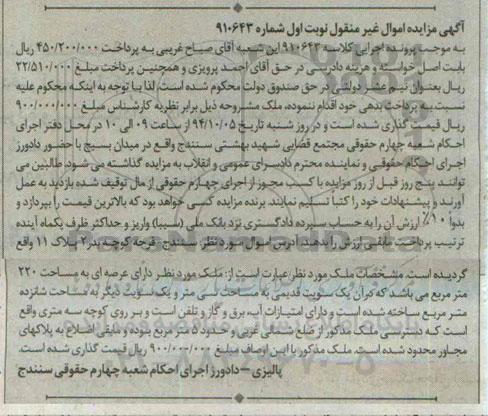 آگهی مزایده اموال غیر منقول نوبت اول شماره ۹۱۰۶۴۳
به موجب پرونده اجرایی کلاسه ۹۱۰۶۴۳ این شعبه آقای صباح غریبی به پرداخت ۴۵۰/۲۰۰/۰۰۰ ریال
بابت اصل خواسته و هزینه دادرسی در حق آقای احمد پرویزی و همچنین پرداخت مبلغ ۲۲/۵۱۰/۰۰۰
ریال بعنوان نیم عشر دولتی در حق صندوق دولت محکوم شده است. لذا با توجه به اینکه محکوم علیه
نسبت به پرداخت بدهی خود اقدام ننموده، ملک مشروحه ذیل برابر نظریه کارشناس مبلغ ۹۰۰/۰۰۰/۰۰۰
ریال قیمت گذاری شده است و در روز شنبه تاریخ ۹۴/۱۰/۰۵ از ساعت ۰۹ الی ۱۰ در محل دفتر اجرای
احکام شعبه چهارم حقوقی مجتمع قضایی شهید بهشتی سنندج واقع در میدان بسیج با حضور دادورز
اجرای احکام حقوقی و نماینده محترم دادسرای عمومی و انقلاب به مزایده گذاشته می شود. طالبین می
توانند پنج روز قبل از روز مزایده با کسب مجوز از اجرای چهارم حقوقی از مال توقیف شده بازدید به عمل
آورند و پیشنهادات خود را کتبا تسلیم نمایند. برنده مزایده کسی خواهد بود که بالاترین قیمت را بپردازد و
بدوا ۱۰٪ ارزش آن را به حساب سپرده دادگستری نزد بانک ملی (سیبا) واریز و حداکثر ظرف یکماه آینده
ترتیب پرداخت مابقی ارزش را بدهد. آدرس اموال مورد نظر سنندج- فرجه کوچه بدر ۲ پلاک ۱۱ واقع
گردیده است. مشخصات ملک مورد نظر عبارت است از: ملک مورد نظر دارای عرصه ای به مساحت ۲۲۰
متر مربع می باشد که در آن یک سوئیت قدیمی به مساحت سی متر و یک سوئیت دیگر به مساحت شانزده
متر مربع ساخته شده است و دارای امتیازات آب، برق و گاز و تلفن است و بر روی کوچه سه متری واقع
است که دسترسی ملک مذکور از ضلع شمالی غربی و حدود ۵ متر مربع بوده و مابقی اضلاع به پلاکهای
مجاور محدود شده است. ملک مذکور با این اوصاف مبلغ ۹۰۰/۰۰۰/۰۰۰ ریال قیمت گذاری شده است.
پالیزی – دادورز اجرای احکام شعبه چهارم حقوقی سنندج